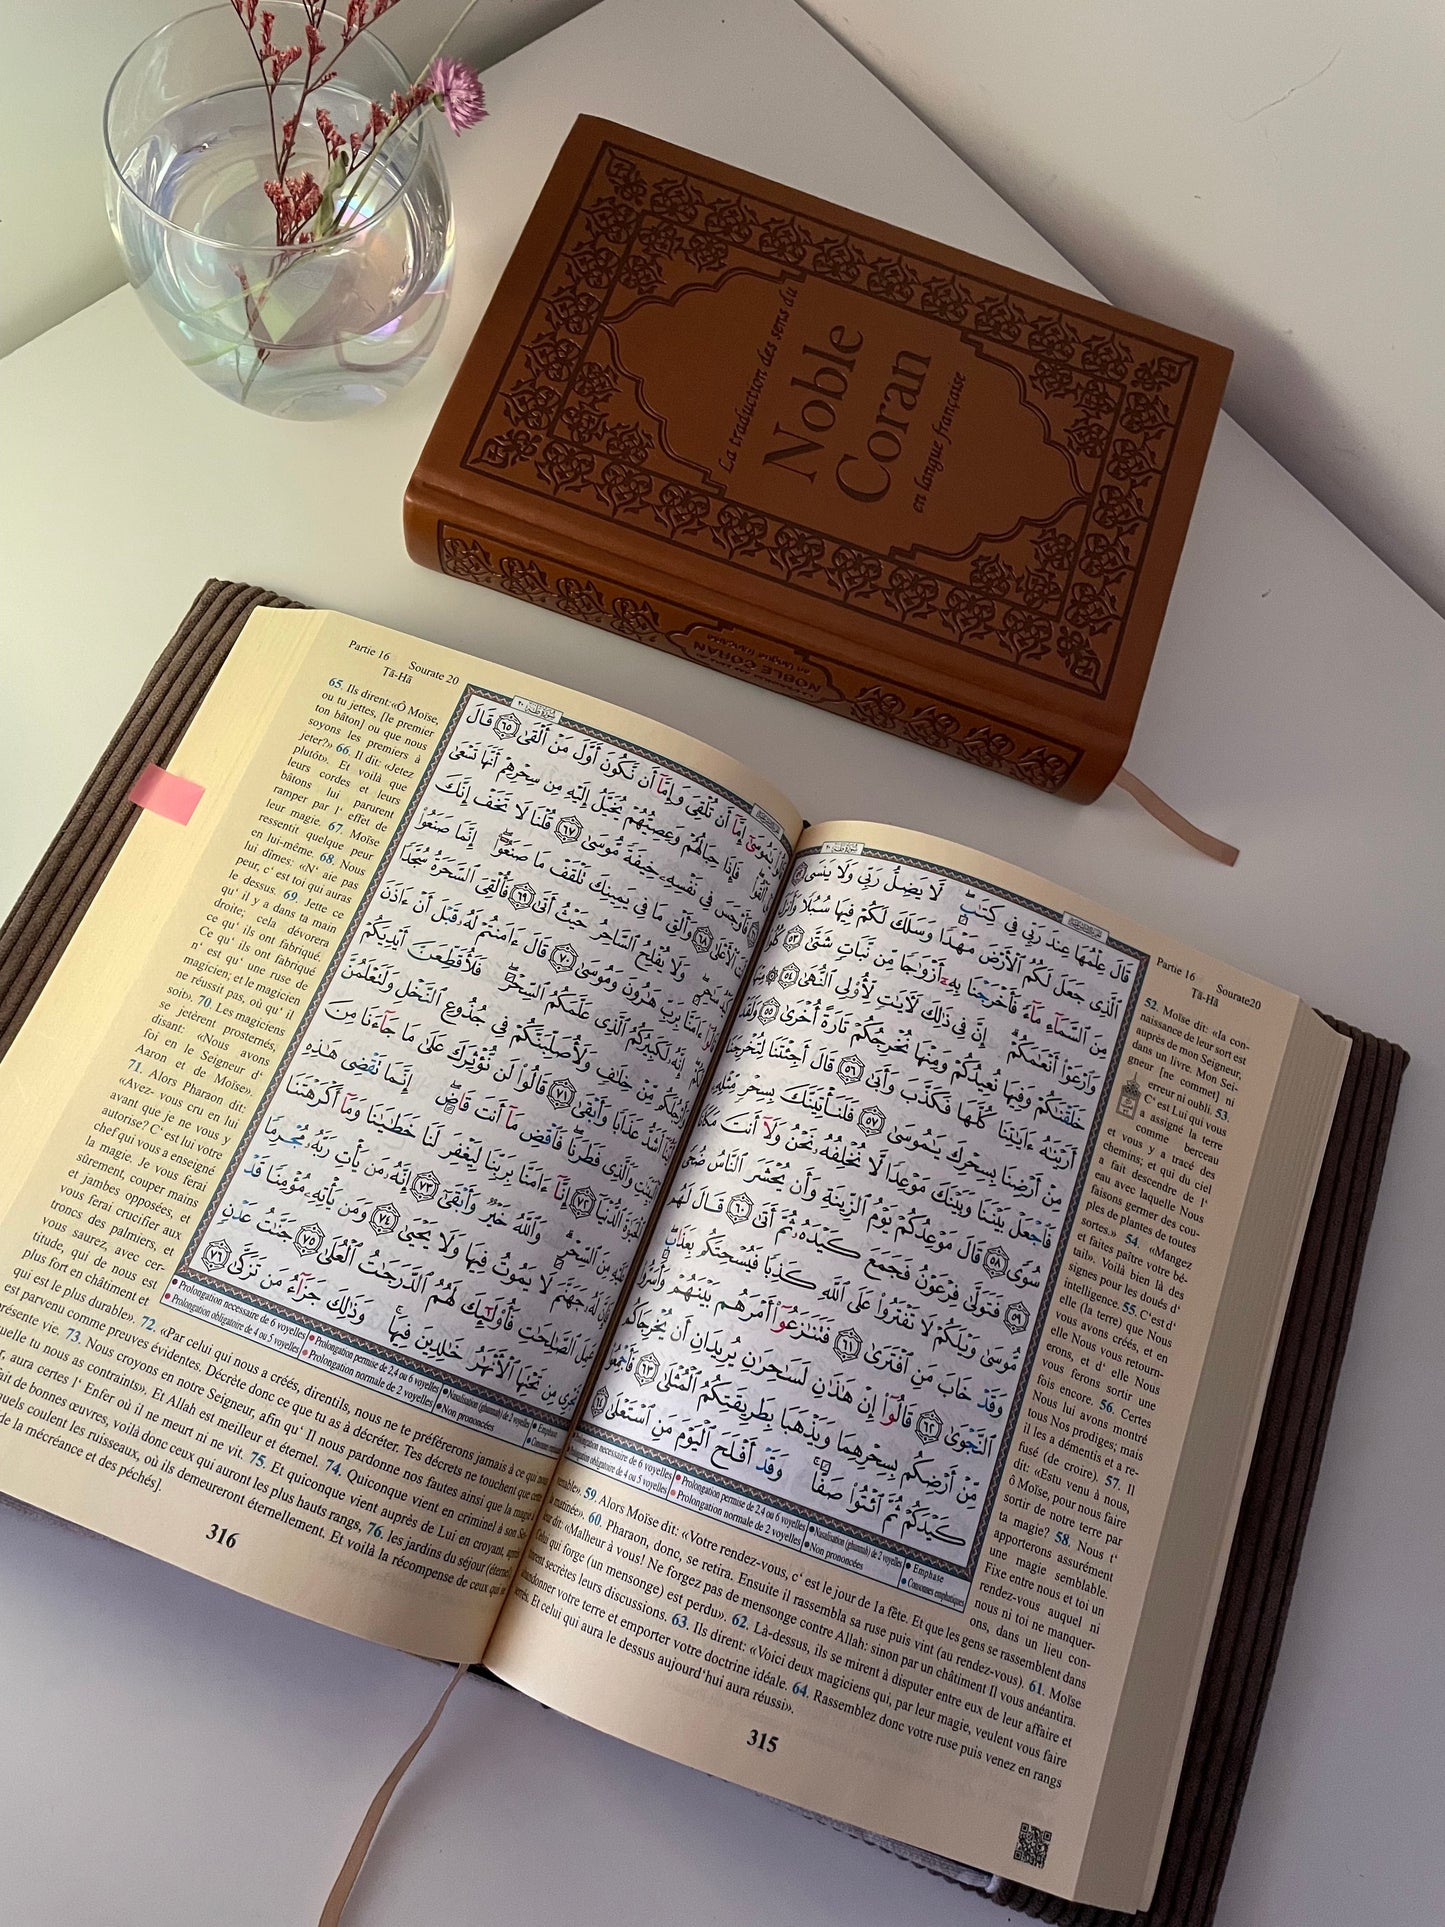 La traduction des sens du
Noble
Coran
en langue française
NOBLE CORAN
Partie 16
Sourate20
Tā-Hā
قَالَ عِلْمُهَا عِندَ رَبِّى فِى كِتَٰبٍۖ لَّا يَضِلُّ رَبِّى وَلَا يَنسَى ٥٢
ٱلَّذِى جَعَلَ لَكُمُ ٱلْأَرْضَ مَهْدًا وَسَلَكَ لَكُمْ فِيهَا سُبُلًا وَأَنزَلَ
مِنَ ٱلسَّمَآءِ مَآءً فَأَخْرَجْنَا بِهِۦٓ أَزْوَٰجًا مِّن نَّبَاتٍ شَتَّىٰ ٥٣ كُلُوا۟
وَٱرْعَوْا۟ أَنْعَٰمَكُمْۗ إِنَّ فِى ذَٰلِكَ لَءَايَٰتٍ لِّأُو۟لِى ٱلنُّهَىٰ ٥٤ مِنْهَا
خَلَقْنَٰكُمْ وَفِيهَا نُعِيدُكُمْ وَمِنْهَا نُخْرِجُكُمْ تَارَةً أُخْرَىٰ ٥٥ وَلَقَدْ
أَرَيْنَٰهُ ءَايَٰتِنَا كُلَّهَا فَكَذَّبَ وَأَبَىٰ ٥٦ قَالَ أَجِئْتَنَا لِتُخْرِجَنَا
مِنْ أَرْضِنَا بِسِحْرِكَ يَٰمُوسَىٰ ٥٧ فَلَنَأْتِيَنَّكَ بِسِحْرٍ مِّثْلِهِۦ
فَٱجْعَلْ بَيْنَنَا وَبَيْنَكَ مَوْعِدًا لَّا نُخْلِفُهُۥ نَحْنُ وَلَآ أَنتَ مَكَانًا
سُوًى ٥٨ قَالَ مَوْعِدُكُمْ يَوْمُ ٱلزِّينَةِ وَأَن يُحْشَرَ ٱلنَّاسُ ضُحًى
٥٩ فَتَوَلَّىٰ فِرْعَوْنُ فَجَمَعَ كَيْدَهُۥ ثُمَّ أَتَىٰ ٦٠ قَالَ لَهُم
مُّوسَىٰ وَيْلَكُمْ لَا تَفْتَرُوا۟ عَلَى ٱللَّهِ كَذِبًا فَيُسْحِتَكُم بِعَذَابٍۖ
وَقَدْ خَابَ مَنِ ٱفْتَرَىٰ ٦١ فَتَنَٰزَعُوٓا۟ أَمْرَهُم بَيْنَهُمْ وَأَسَرُّوا۟
ٱلنَّجْوَىٰ ٦٢ قَالُوٓا۟ إِنْ هَٰذَٰنِ لَسَٰحِرَٰنِ يُرِيدَانِ أَن يُخْرِجَاكُم
مِّنْ أَرْضِكُم بِسِحْرِهِمَا وَيَذْهَبَا بِطَرِيقَتِكُمُ ٱلْمُثْلَىٰ ٦٣ فَأَجْمِعُوا۟
كَيْدَكُمْ ثُمَّ ٱئْتُوا۟ صَفًّاۚ وَقَدْ أَفْلَحَ ٱلْيَوْمَ مَنِ ٱسْتَعْلَىٰ ٦٤
Prolongation permise de 2,4 ou 6 voyelles
Nasalisation (ghunnah) de 2 voyelles
Emphase
Prolongation obligatoire de 4 ou 5 voyelles
Prolongation normale de 2 voyelles
Non prononcées
Consonnes emphatiques
52. Moïse dit: «la con-
naissance de leur sort est
auprès de mon Seigneur,
dans un livre. Mon Sei-
gneur [ne commet] ni
erreur ni oubli. 53.
C' est Lui qui vous
a assigné la terre
comme berceau
et vous y a tracé des
chemins; et qui du ciel
a fait descendre de l'
eau avec laquelle Nous
faisons germer des cou-
ples de plantes de toutes
sortes.» 54. «Mangez
et faites paître votre bé-
tail». Voilà bien là des
signes pour les doués d'
intelligence. 55. C'est d'
elle (la terre) que Nous
vous avons créés, et en
elle Nous vous retourn-
erons, et d' elle Nous
vous ferons sortir une
fois encore. 56. Certes
Nous lui avons montré
tous Nos prodiges; mais
il les a démentis et a re-
fusé (de croire). 57. Il
dit: «Estu venu à nous,
ô Moïse, pour nous faire
sortir de notre terre par
ta magie? 58. Nous t'
apporterons assurément
une magie semblable.
Fixe entre nous et toi un
rendez-vous auquel ni
nous ni toi ne manquer-
ons, dans un lieu con-
venable». 59. Alors Moise dit: «Votre rendez-vous, c' est le jour de la fête. Et que les gens se rassemblent dans
la matinée». 60. Pharaon, donc, se retira. Ensuite il rassembla sa ruse puis vint (au rendez-vous). 61. Moïse
leur dit: «Malheur à vous! Ne forgez pas de mensonge contre Allah: sinon par un châtiment Il vous anéantira.
Celui qui forge (un mensonge) est perdu». 62. Là-dessus, ils se mirent à disputer entre eux de leur affaire et
tinrent secrètes leurs discussions. 63. Ils dirent: «Voici deux magiciens qui, par leur magie, veulent vous faire
abandonner votre terre et emporter votre doctrine idéale. 64. Rassemblez donc votre ruse puis venez en rangs
serrés. Et celui qui aura le dessus aujourd'hui aura réussi».
315
Partie 16
Sourate 20
Tā-Hā
قَالُوا۟ يَٰمُوسَىٰٓ إِمَّآ أَن تُلْقِىَ وَإِمَّآ أَن نَّكُونَ أَوَّلَ مَنْ أَلْقَىٰ ٦٥ قَالَ
بَلْ أَلْقُوا۟ۖ فَإِذَا حِبَالُهُمْ وَعِصِيُّهُمْ يُخَيَّلُ إِلَيْهِ مِن سِحْرِهِمْ أَنَّهَا تَسْعَىٰ
فَأَوْجَسَ فِى نَفْسِهِۦ خِيفَةً مُّوسَىٰ ٦٧ قُلْنَا لَا تَخَفْ إِنَّكَ
أَنتَ ٱلْأَعْلَىٰ ٦٨ وَأَلْقِ مَا فِى يَمِينِكَ تَلْقَفْ مَا صَنَعُوٓا۟ۖ إِنَّمَا صَنَعُوا۟
كَيْدُ سَٰحِرٍۖ وَلَا يُفْلِحُ ٱلسَّاحِرُ حَيْثُ أَتَىٰ ٦٩ فَأُلْقِىَ ٱلسَّحَرَةُ سُجَّدًا
قَالُوٓا۟ ءَامَنَّا بِرَبِّ هَٰرُونَ وَمُوسَىٰ ٧٠ قَالَ ءَامَنتُمْ لَهُۥ قَبْلَ أَنْ ءَاذَنَ
لَكُمْۖ إِنَّهُۥ لَكَبِيرُكُمُ ٱلَّذِى عَلَّمَكُمُ ٱلسِّحْرَۖ فَلَأُقَطِّعَنَّ أَيْدِيَكُمْ
وَأَرْجُلَكُم مِّنْ خِلَٰفٍ وَلَأُصَلِّبَنَّكُمْ فِى جُذُوعِ ٱلنَّخْلِ وَلَتَعْلَمُنَّ
أَيُّنَآ أَشَدُّ عَذَابًا وَأَبْقَىٰ ٧١ قَالُوا۟ لَن نُّؤْثِرَكَ عَلَىٰ مَا جَآءَنَا مِنَ
ٱلْبَيِّنَٰتِ وَٱلَّذِى فَطَرَنَاۖ فَٱقْضِ مَآ أَنتَ قَاضٍۖ إِنَّمَا تَقْضِى هَٰذِهِ
ٱلْحَيَوٰةَ ٱلدُّنْيَآ ٧٢ إِنَّآ ءَامَنَّا بِرَبِّنَا لِيَغْفِرَ لَنَا خَطَٰيَٰنَا وَمَآ أَكْرَهْتَنَا
عَلَيْهِ مِنَ ٱلسِّحْرِۗ وَٱللَّهُ خَيْرٌ وَأَبْقَىٰٓ ٧٣ إِنَّهُۥ مَن يَأْتِ رَبَّهُۥ مُجْرِمًا
فَإِنَّ لَهُۥ جَهَنَّمَ لَا يَمُوتُ فِيهَا وَلَا يَحْيَىٰ ٧٤ وَمَن يَأْتِهِۦ مُؤْمِنًا قَدْ
عَمِلَ ٱلصَّٰلِحَٰتِ فَأُو۟لَٰٓئِكَ لَهُمُ ٱلدَّرَجَٰتُ ٱلْعُلَىٰ ٧٥ جَنَّٰتُ عَدْنٍ
تَجْرِى مِن تَحْتِهَا ٱلْأَنْهَٰرُ خَٰلِدِينَ فِيهَاۚ وَذَٰلِكَ جَزَآءُ مَن تَزَكَّىٰ ٧٦
Prolongation necessaire de 6 voyelles
Prolongation permise de 2,4 ou 6 voyelles
Nasalisation (ghunnah) de 2 voyelles
Emphase
Prolongation obligatoire de 4 ou 5 voyelles
Prolongation normale de 2 voyelles
Non prononcées
65. Ils dirent:«Ô Moïse,
ou tu jettes, [le premier
ton bâton] ou que nous
soyons les premiers à
jeter?» 66. Il dit: «Jetez
plutôt». Et voilà que
leurs cordes et leurs
bâtons lui parurent
ramper par l' effet de
leur magie. 67. Moïse
ressentit quelque peur
en lui-même. 68. Nous
lui dîmes: «N' aie pas
peur, c' est toi qui auras
le dessus. 69. Jette ce
qu' il y a dans ta main
droite; cela dévorera
ce qu' ils ont fabriqué.
Ce qu' ils ont fabriqué
n' est qu' une ruse de
magicien; et le magicien
ne réussit pas, où qu' il
soit». 70. Les magiciens
se jetèrent prosternés,
disant: «Nous avons
foi en le Seigneur d'
Aaron et de Moïse».
71. Alors Pharaon dit:
«Avez- vous cru en lui
avant que je ne vous y
autorise? C' est lui votre
chef qui vous a enseigné
la magie. Je vous ferai
sûrement, couper mains
et jambes opposées, et
vous ferai crucifier aux
troncs des palmiers, et
vous saurez, avec cer-
titude, qui de nous est
plus fort en châtiment et
qui est le plus durable». 72. «Par celui qui nous a créés, direntils, nous ne te préférerons jamais à ce qui nous
est parvenu comme preuves évidentes. Décrète donc ce que tu as à décréter. Tes décrets ne touchent que cette
présente vie. 73. Nous croyons en notre Seigneur, afin qu' Il nous pardonne nos fautes ainsi que la magie à
laquelle tu nous as contraints». Et Allah est meilleur et éternel. 74. Quiconque vient en criminel à son Sei-
aura certes l' Enfer où il ne meurt ni ne vit. 75. Et quiconque vient auprès de Lui en croyant, après
fait de bonnes œuvres, voilà donc ceux qui auront les plus hauts rangs, 76. les jardins du séjour (éternel),
quels coulent les ruisseaux, où ils demeureront éternellement. Et voilà la récompense de ceux qui se
de la mécréance et des péchés].
316